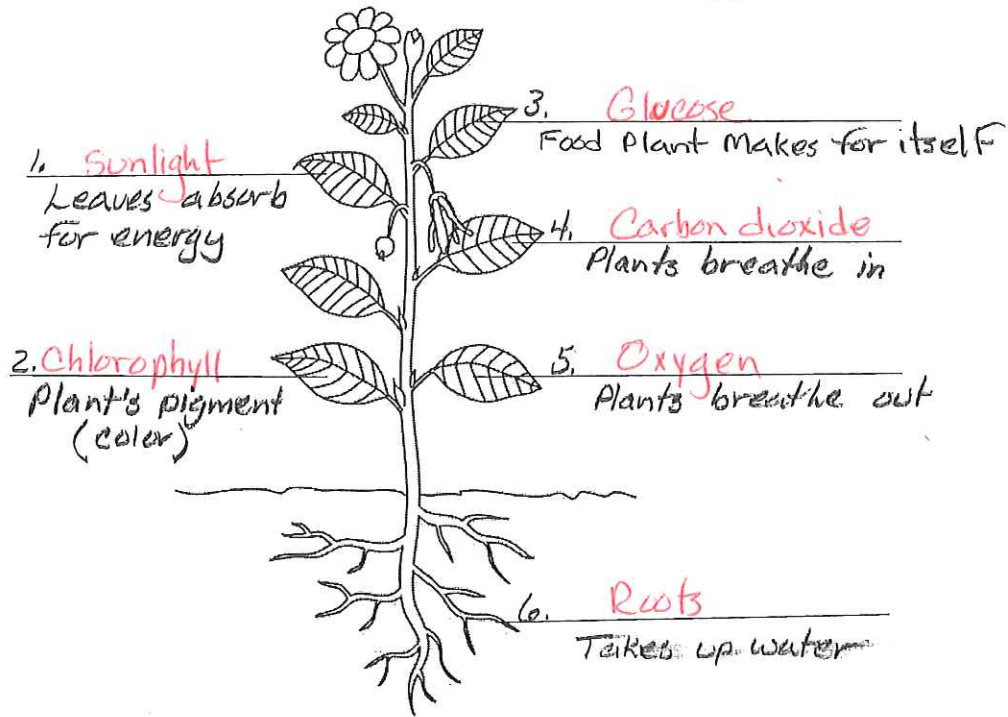 1. Sunlight
Leaves absorb
for energy
2. Chlorophyll
Plant's pigment
(color)
3. Glucose
Food Plant Makes for itself
4. Carbon dioxide
Plants breathe in
5. Oxygen
Plants breathe out
6. Roots
Takes up water